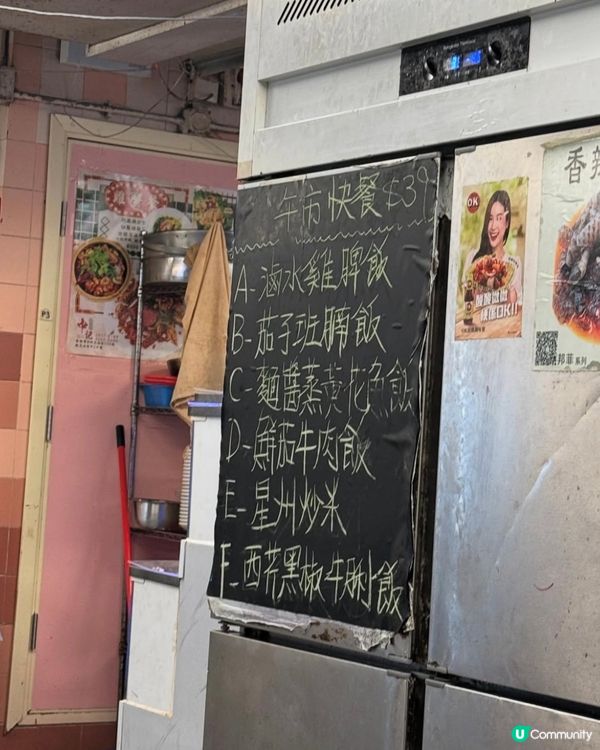 午市快餐$39
A-滷水雞脾飯
B-茄子班腩飯
C-麵醬蒸黃花魚飯
D-鮮茄牛肉飯
E-星州炒米
F-西芹黑椒牛脷飯
香辣
OK
邦菲系列
U Community